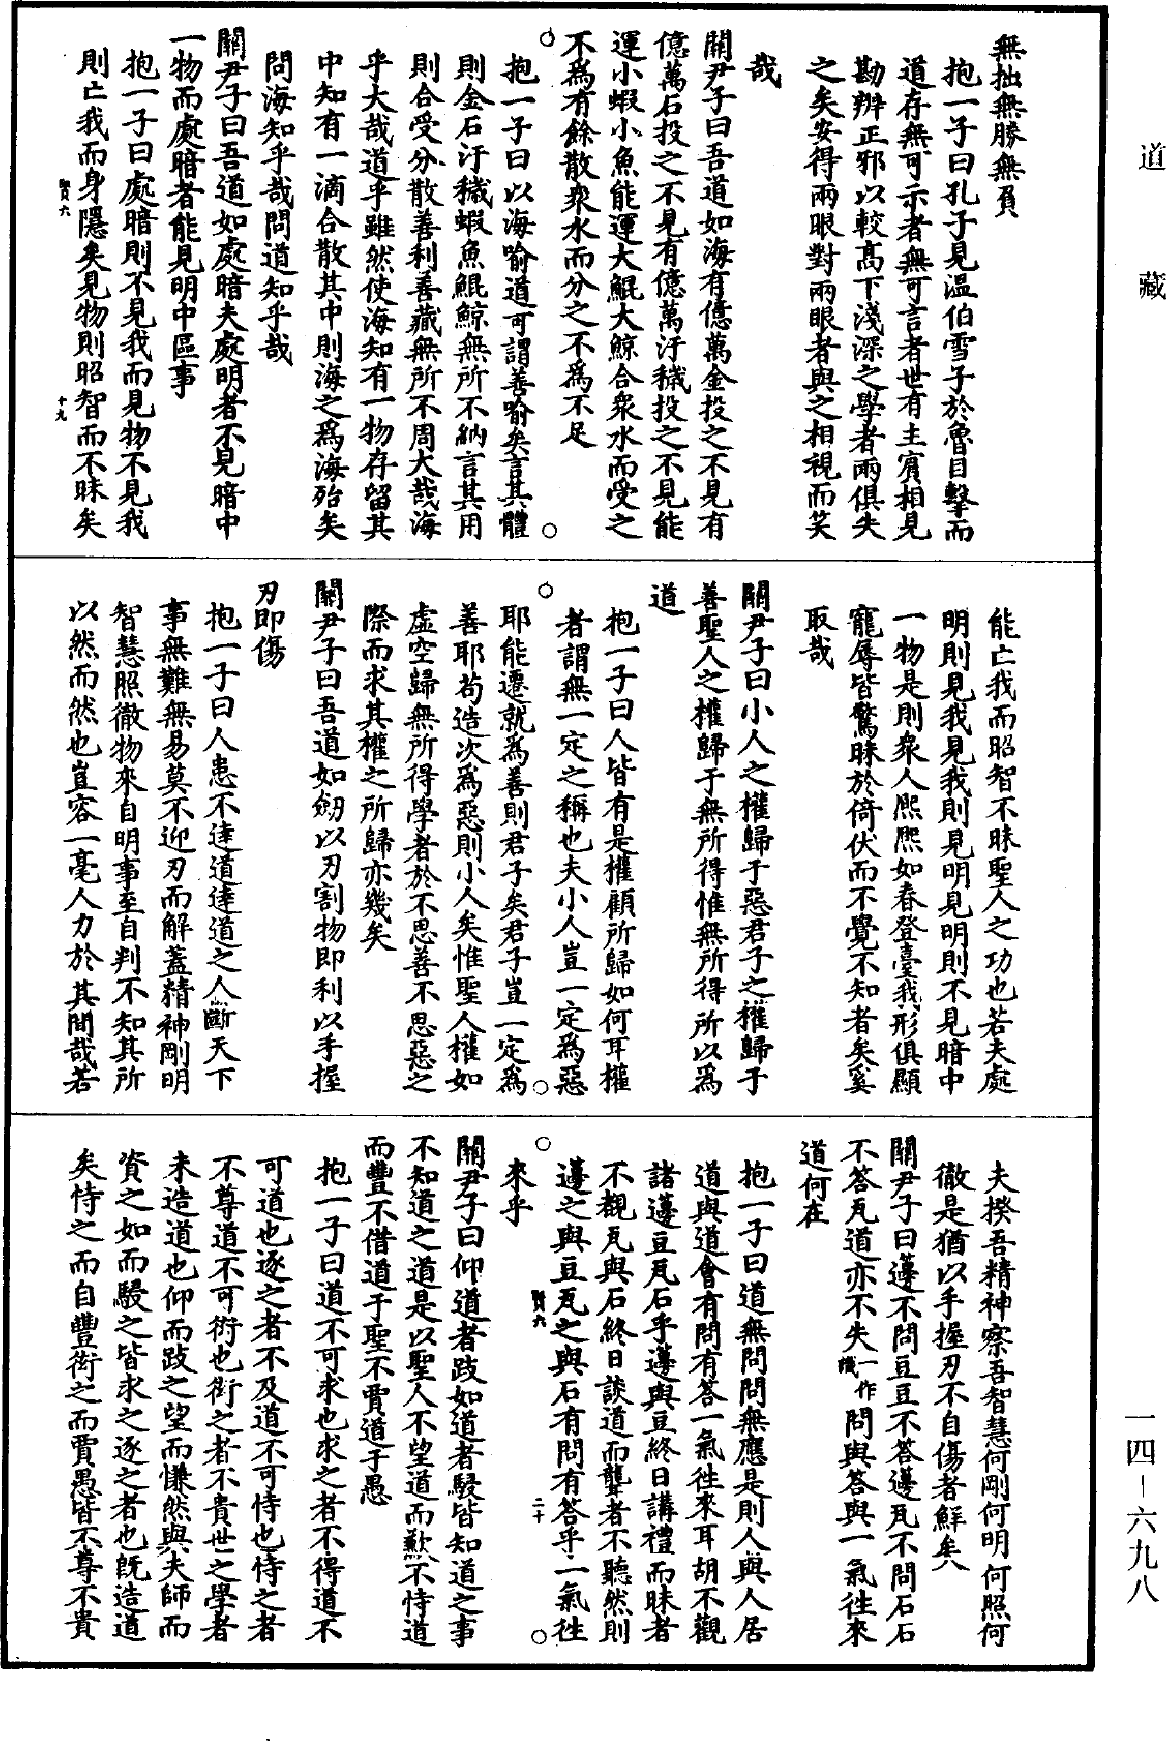 道藏
無拙無勝無負
抱一子曰孔子見溫伯雪子於魯目擊而
道存無可示者無可言者世有主賓相見
勘辨正邪以較高下淺深之學者兩俱失
之矣安得兩眼對兩眼者與之相視而笑
哉
關尹子曰吾道如海有億萬金投之不見有
億萬石投之不見有億萬汙穢投之不見能
運小蝦小魚能運大鯤大鯨合衆水而受之
不爲有餘散衆水而分之不爲不足
抱一子曰以海喻道可謂善喻矣言其體
則金石汙穢蝦魚鯤鯨無所不納言其用
則合受分散善利善藏無所不周大哉海
乎大哉道乎雖然使海知有一物存留其
中知有一滴合散其中則海之爲海殆矣
問海知乎哉問道知乎哉
關尹子曰吾道如處暗夫處明者不見暗中
一物而處暗者能見明中區事
抱一子曰處暗則不見我而見物不見我
則亡我而身隱矣見物則昭智而不昧矣
賢六
十九
能亡我而昭智不昧聖人之功也若夫處
明則見我見我則見明見明則不見暗中
一物是則衆人熙熙如春登臺我形俱顯
寵辱皆驚昧於倚伏而不覺不知者矣奚
取哉
關尹子曰小人之權歸于惡君子之權歸于
善聖人之權歸于無所得惟無所得所以爲
道
抱一子曰人皆有是權顧所歸如何耳權
者謂無一定之稱也夫小人豈一定爲惡
耶能遷就爲善則君子矣君子豈一定爲
善耶苟造次爲惡則小人矣惟聖人權如
虛空歸無所得學者於不思善不思惡之
際而求其權之所歸亦幾矣
關尹子曰吾道如劒以刃割物即利以手握
刃即傷
抱一子曰人患不達道達道之人斷天下
事無難無易莫不迎刃而解蓋精神剛明
智慧照徹物來自明事至自判不知其所
以然而然也豈容一毫人力於其間哉若
夫揆吾精神察吾智慧何剛何明何照何
徹是猶以手握刃不自傷者鮮矣
關尹子曰籩不問豆豆不答籩瓦不問石石
不答瓦道亦不失一作識問與答與一氣往來
道何在
抱一子曰道無問問無應是則人與人居
道與道會有問有答一氣往來耳胡不觀
諸籩豆瓦石乎籩與豆終日講禮而昧者
不觀瓦與石終日談道而聾者不聽然則
籩之與豆瓦之與石有問有答乎一氣往
來乎
賢六
二十
關尹子曰仰道者跂如道者駸皆知道之事
不知道之道是以聖人不望道而歉不恃道
而豐不借道于聖不賈道于愚
抱一子曰道不可求也求之者不得道不
可道也逐之者不及道不可恃也恃之者
不尊道不可衒也衒之者不貴世之學者
未造道也仰而跂之望而慊然與夫師而
資之如而駸之皆求之逐之者也既造道
矣恃之而自豐衒之而賈愚皆不尊不貴
一四－六九八